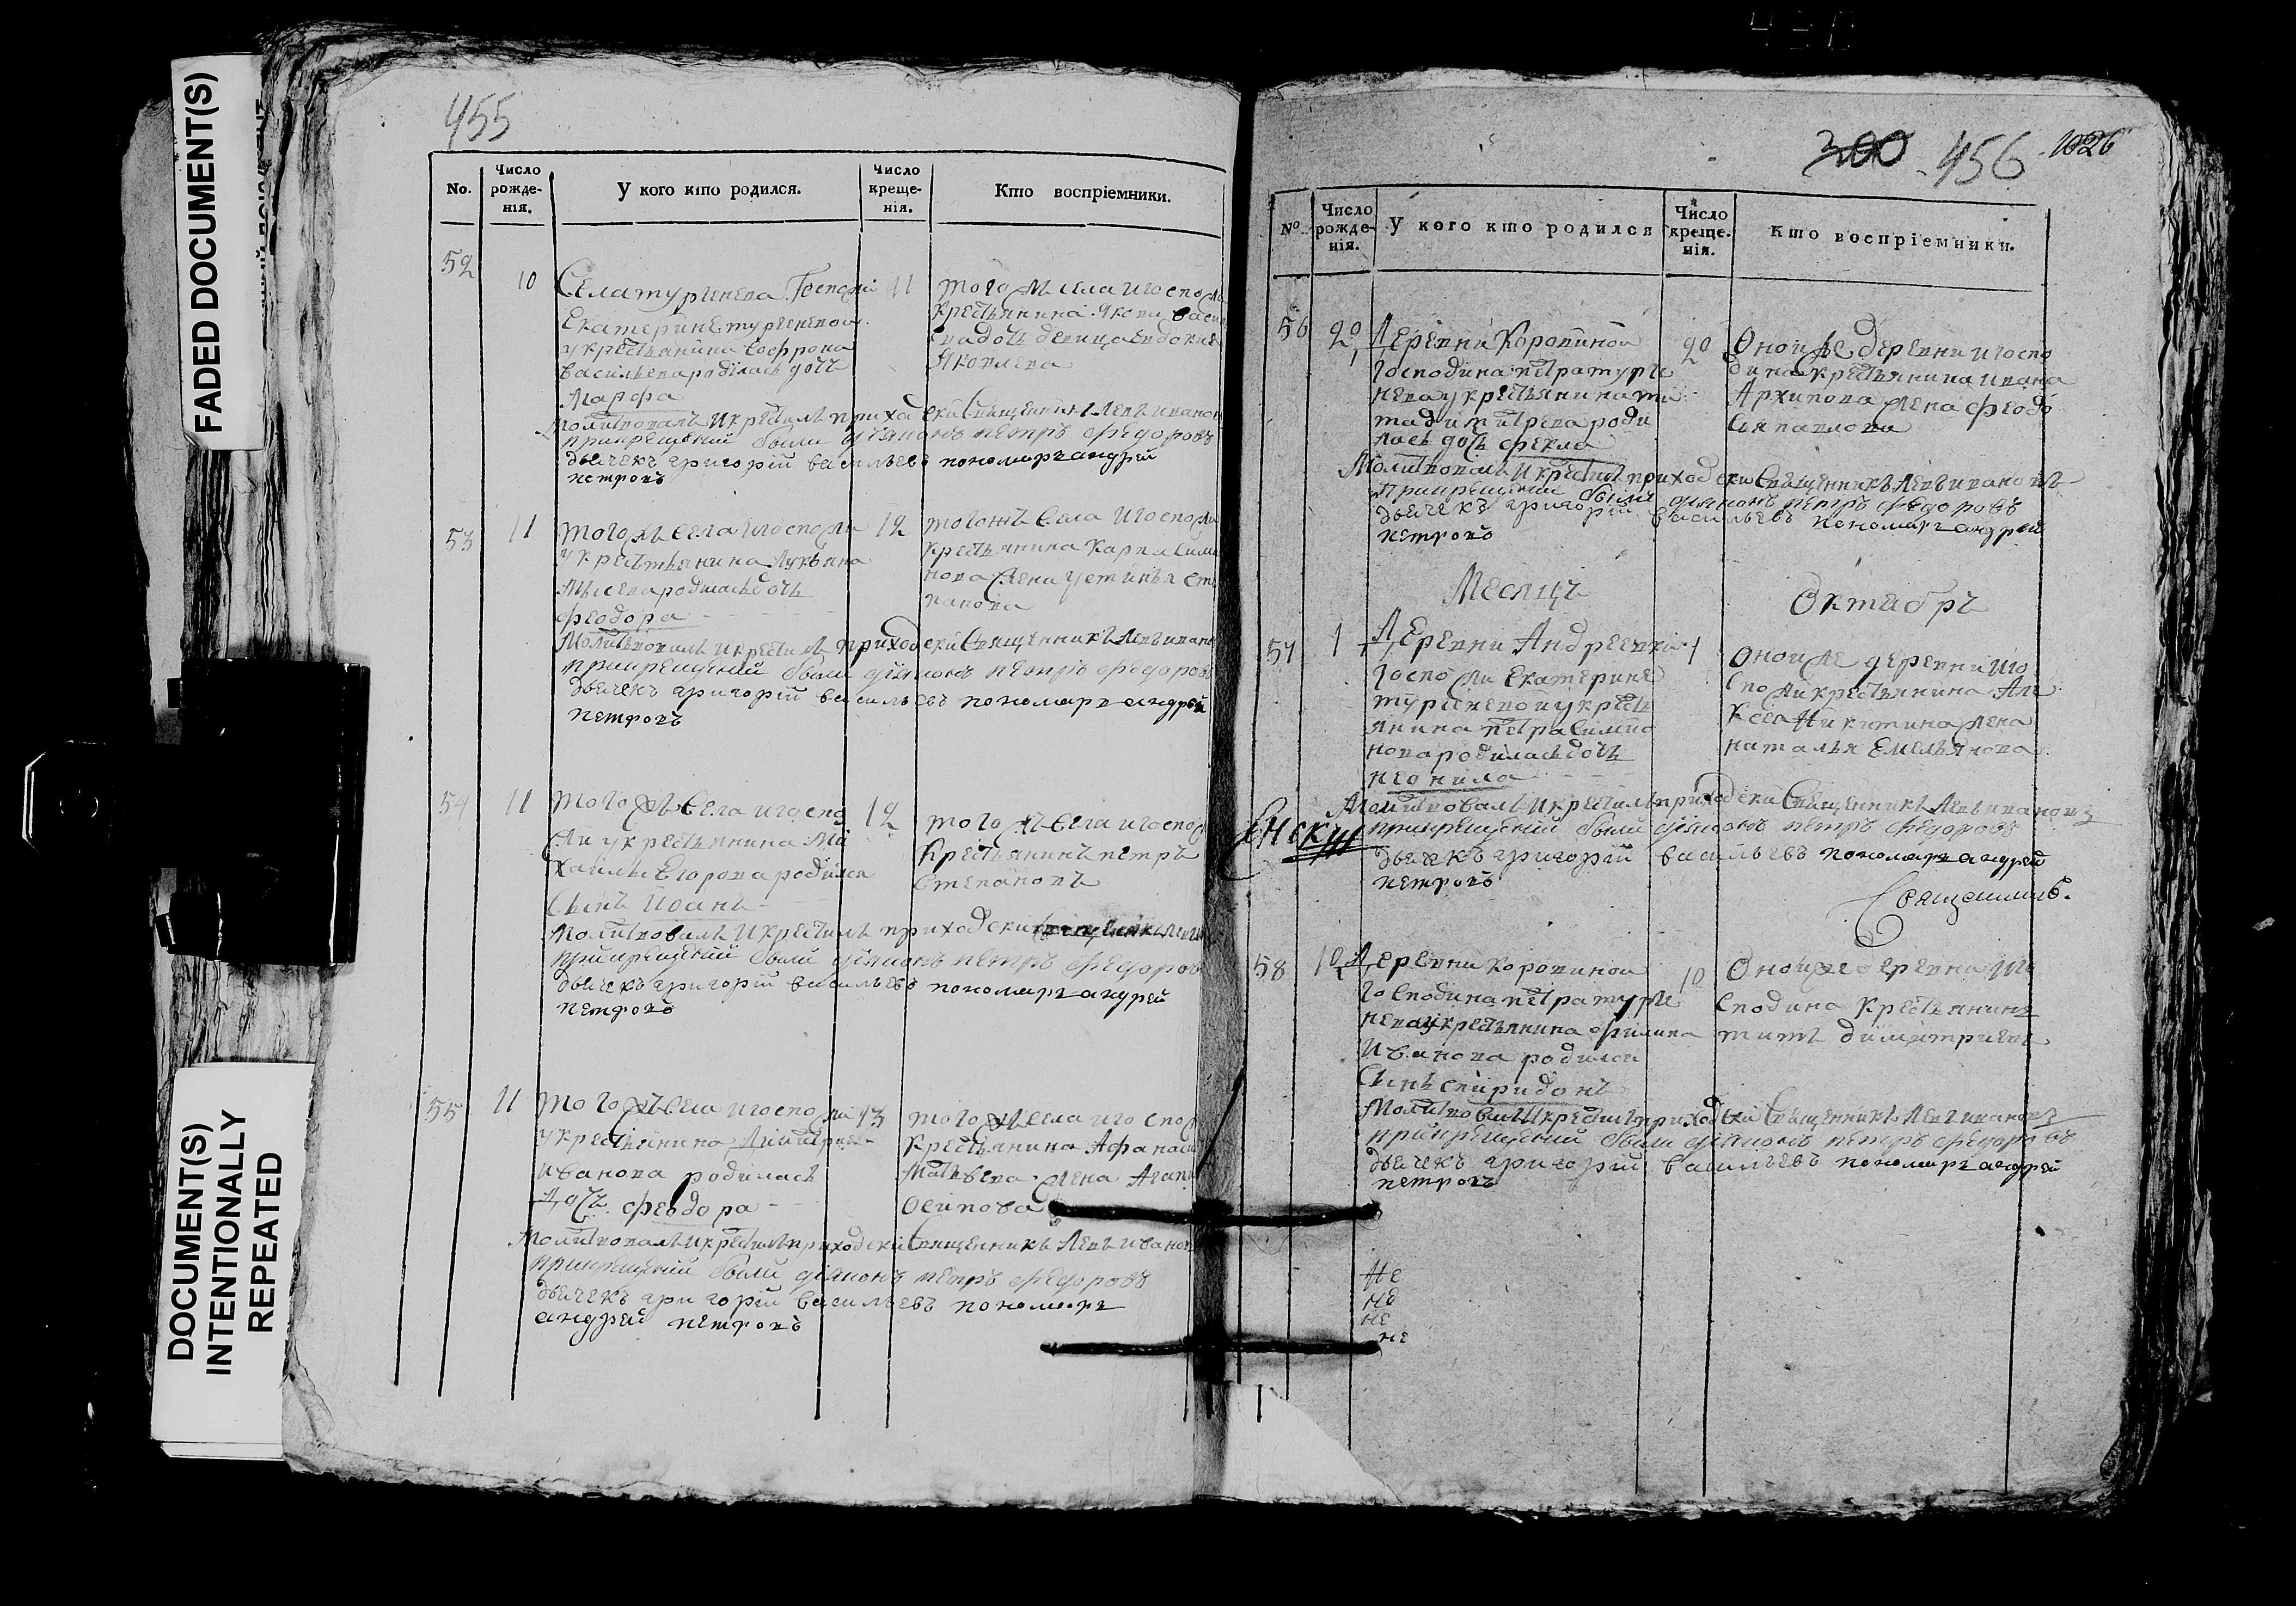 FADED DOCUMENT(S)
DOCUMENT(S)
INTENTIONALLY
REPEATED
455
No.
Число рожде-нія.
У кого кто родился.
Число креще-нія.
Кто воспріемники.
52
10
Села тургенева Госпожи
Екатерине тургеневои
у крестьянина Софрона
Васильева родилась дочь
Марфа
11
того жъ села и госпожи
крестьянина Якова
дочь девица евдокия
Яковлева
Молитвовалъ и крестилъ приходски Священникъ Левъ иванов
прикрещении были диаконъ петръ федоровъ
дьячекъ григорій васильевъ пономарь андрей
петровъ
53
11
того жъ села и госпожи
у крестьянина Лукьяна
родилась дочь
феодора
12
того жъ села и госпожи
крестьянина Карпа Симо
нова жена устинья Сте
панова
Молитвовалъ и крестилъ приходски Священникъ Левъ иванов
прикрещении были диаконъ петръ федоровъ
дьячекъ григорій васильевъ пономарь андрей
петровъ
54
11
того жъ села и госпо
жи у крестьянина Ми
хаилы Егорова родился
Сынъ Иоанъ
12
того жъ села и госпож
крестьянинъ петръ
Степановъ
Молитвовалъ и крестилъ приходски Священникъ
прикрещении были диаконъ петръ федоров
дьячекъ григорій васильевъ пономарь андрей
петровъ
55
11
того жъ села и госпожи
у крестьянина Димитрия
иванова родилась
дочь феодора
13
того жъ села и госпож
крестьянина Афанаси
Матвеева жена Агап
осипова
Молитвовалъ и крестилъ приходски Священникъ Левъ иванов
прикрещении были диаконъ петръ федоровъ
дьячекъ григорій васильевъ пономарь
андрей петровъ
300 456 1026
No.
Число рожде-нія.
У кого кто родился
Число креще-нія.
Кто воспріемники.
56
20
Деревни Коровиной
господина петра турге
нева у крестьянина ти
та димитрева роди
лась дочь фекла
20
Оной же деревни и госпо
дина крестьянина ивана
Архипова жена феодо
сья павлова
Молитвовалъ и крестилъ приходски Священникъ Левъ ивановъ
прикрещении были диаконъ петръ федоровъ
дьячекъ григорій васильевъ пономарь андрей
петровъ
Месяцъ Октябръ
57
1
Деревни Андреевки
госпожи Екатерине
тургеневой у кресть
янина петра Симио
нова родилась дочь
неонила
1
Оной же деревни и го
спожи крестьянина Але
ксея Никитина жена
наталья Емельянова
Молитвовалъ и крестилъ приходски Священникъ Левъ ивановъ
прикрещении были диаконъ петръ федоровъ
дьячекъ григорій васильевъ пономарь андрей
петровъ
58
10
Деревни коровиной
господина петра турге
нева у крестьянина филипа
Иванова родился
Сынъ спиридонъ
10
Оной же деревни и го
сподина крестьянинъ
титъ димитриевъ
Молитвовалъ и крестилъ приходски Священникъ Левъ ивановъ
прикрещении были диаконъ петръ федоровъ
дьячекъ григорій васильевъ пономарь андрей
петровъ
не
не
не
не